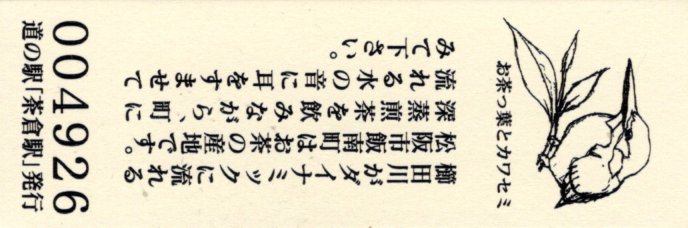 お茶っ葉とカワセミ
櫛田川がダイナミックに流れる
松阪市飯南町はお茶の産地です。
深蒸煎茶を飲みながら、町に
流れる水の音に耳をすませて
みて下さい。
004926
道の駅「茶倉駅」発行